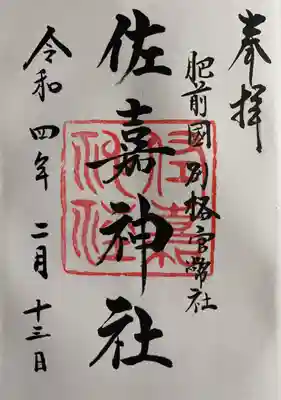 奉拝
肥前國別格官幣社
佐嘉神社
令和四年二月十三日
佐嘉神社